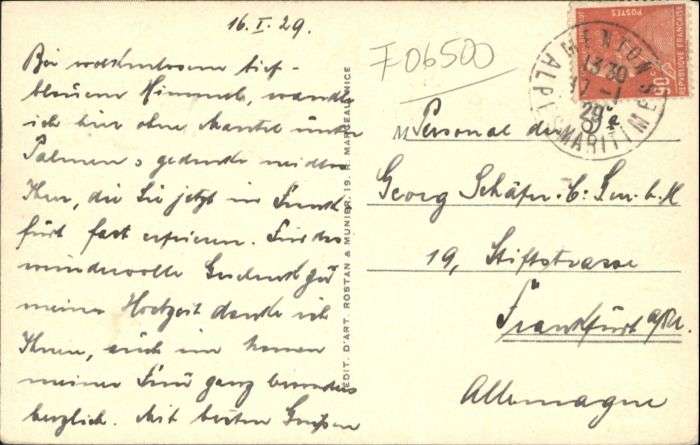 16. I. 29.
Bei wolkenlosem tief-
blauem Himmel, wandle
ich hier ohne Mantel unter
Palmen & gedenke
Ihrer, die Sie jetzt in Frank-
furt fast erfrieren. Für das
wundervolle Geschenk zu
meiner Hochzeit danke ich
Ihnen, auch im Namen
meiner Frau ganz besonders
herzlich. Mit besten Grüßen
EDIT. D'ART. ROSTAN & MUNIER, 19, R. MARCEAU, NICE
F 06500
POSTES
REPUBLIQUE FRANÇAISE
90
MENTON
13 30
17 -1
29
ALPES MARITIMES
Personal der Fa
Georg Schäfer & G.m.b.H
19, Stiftstrasse
Frankfurt a/M.
Allemagne